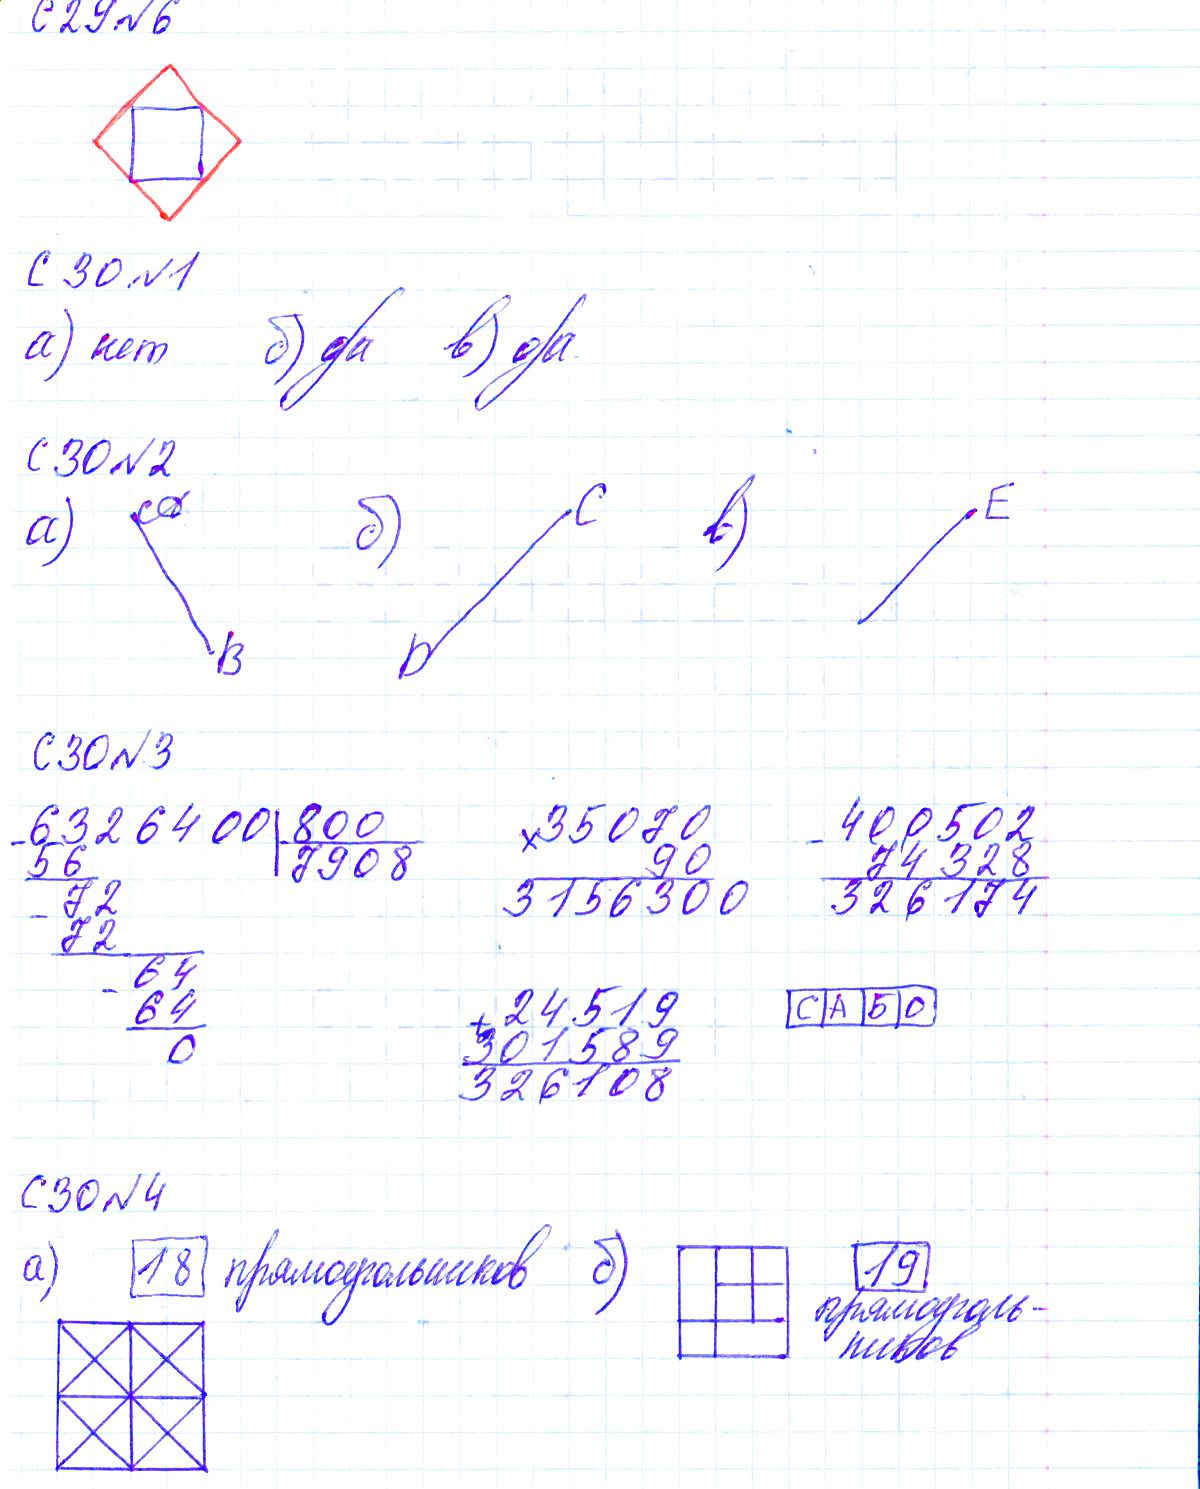 С29№6
С30№1
а) нет б) да в) да
С30№2
а) б) C в) E
B D
С30№3
6326400 800 × 35070 - 400502
- 56 7908 90 74328
- 72 3156300 326174
72
- 64
64 + 24519 САБО
0 301589
326108
С30№4
а) 18 прямоугольников б) 19
прямоуголь-
ников